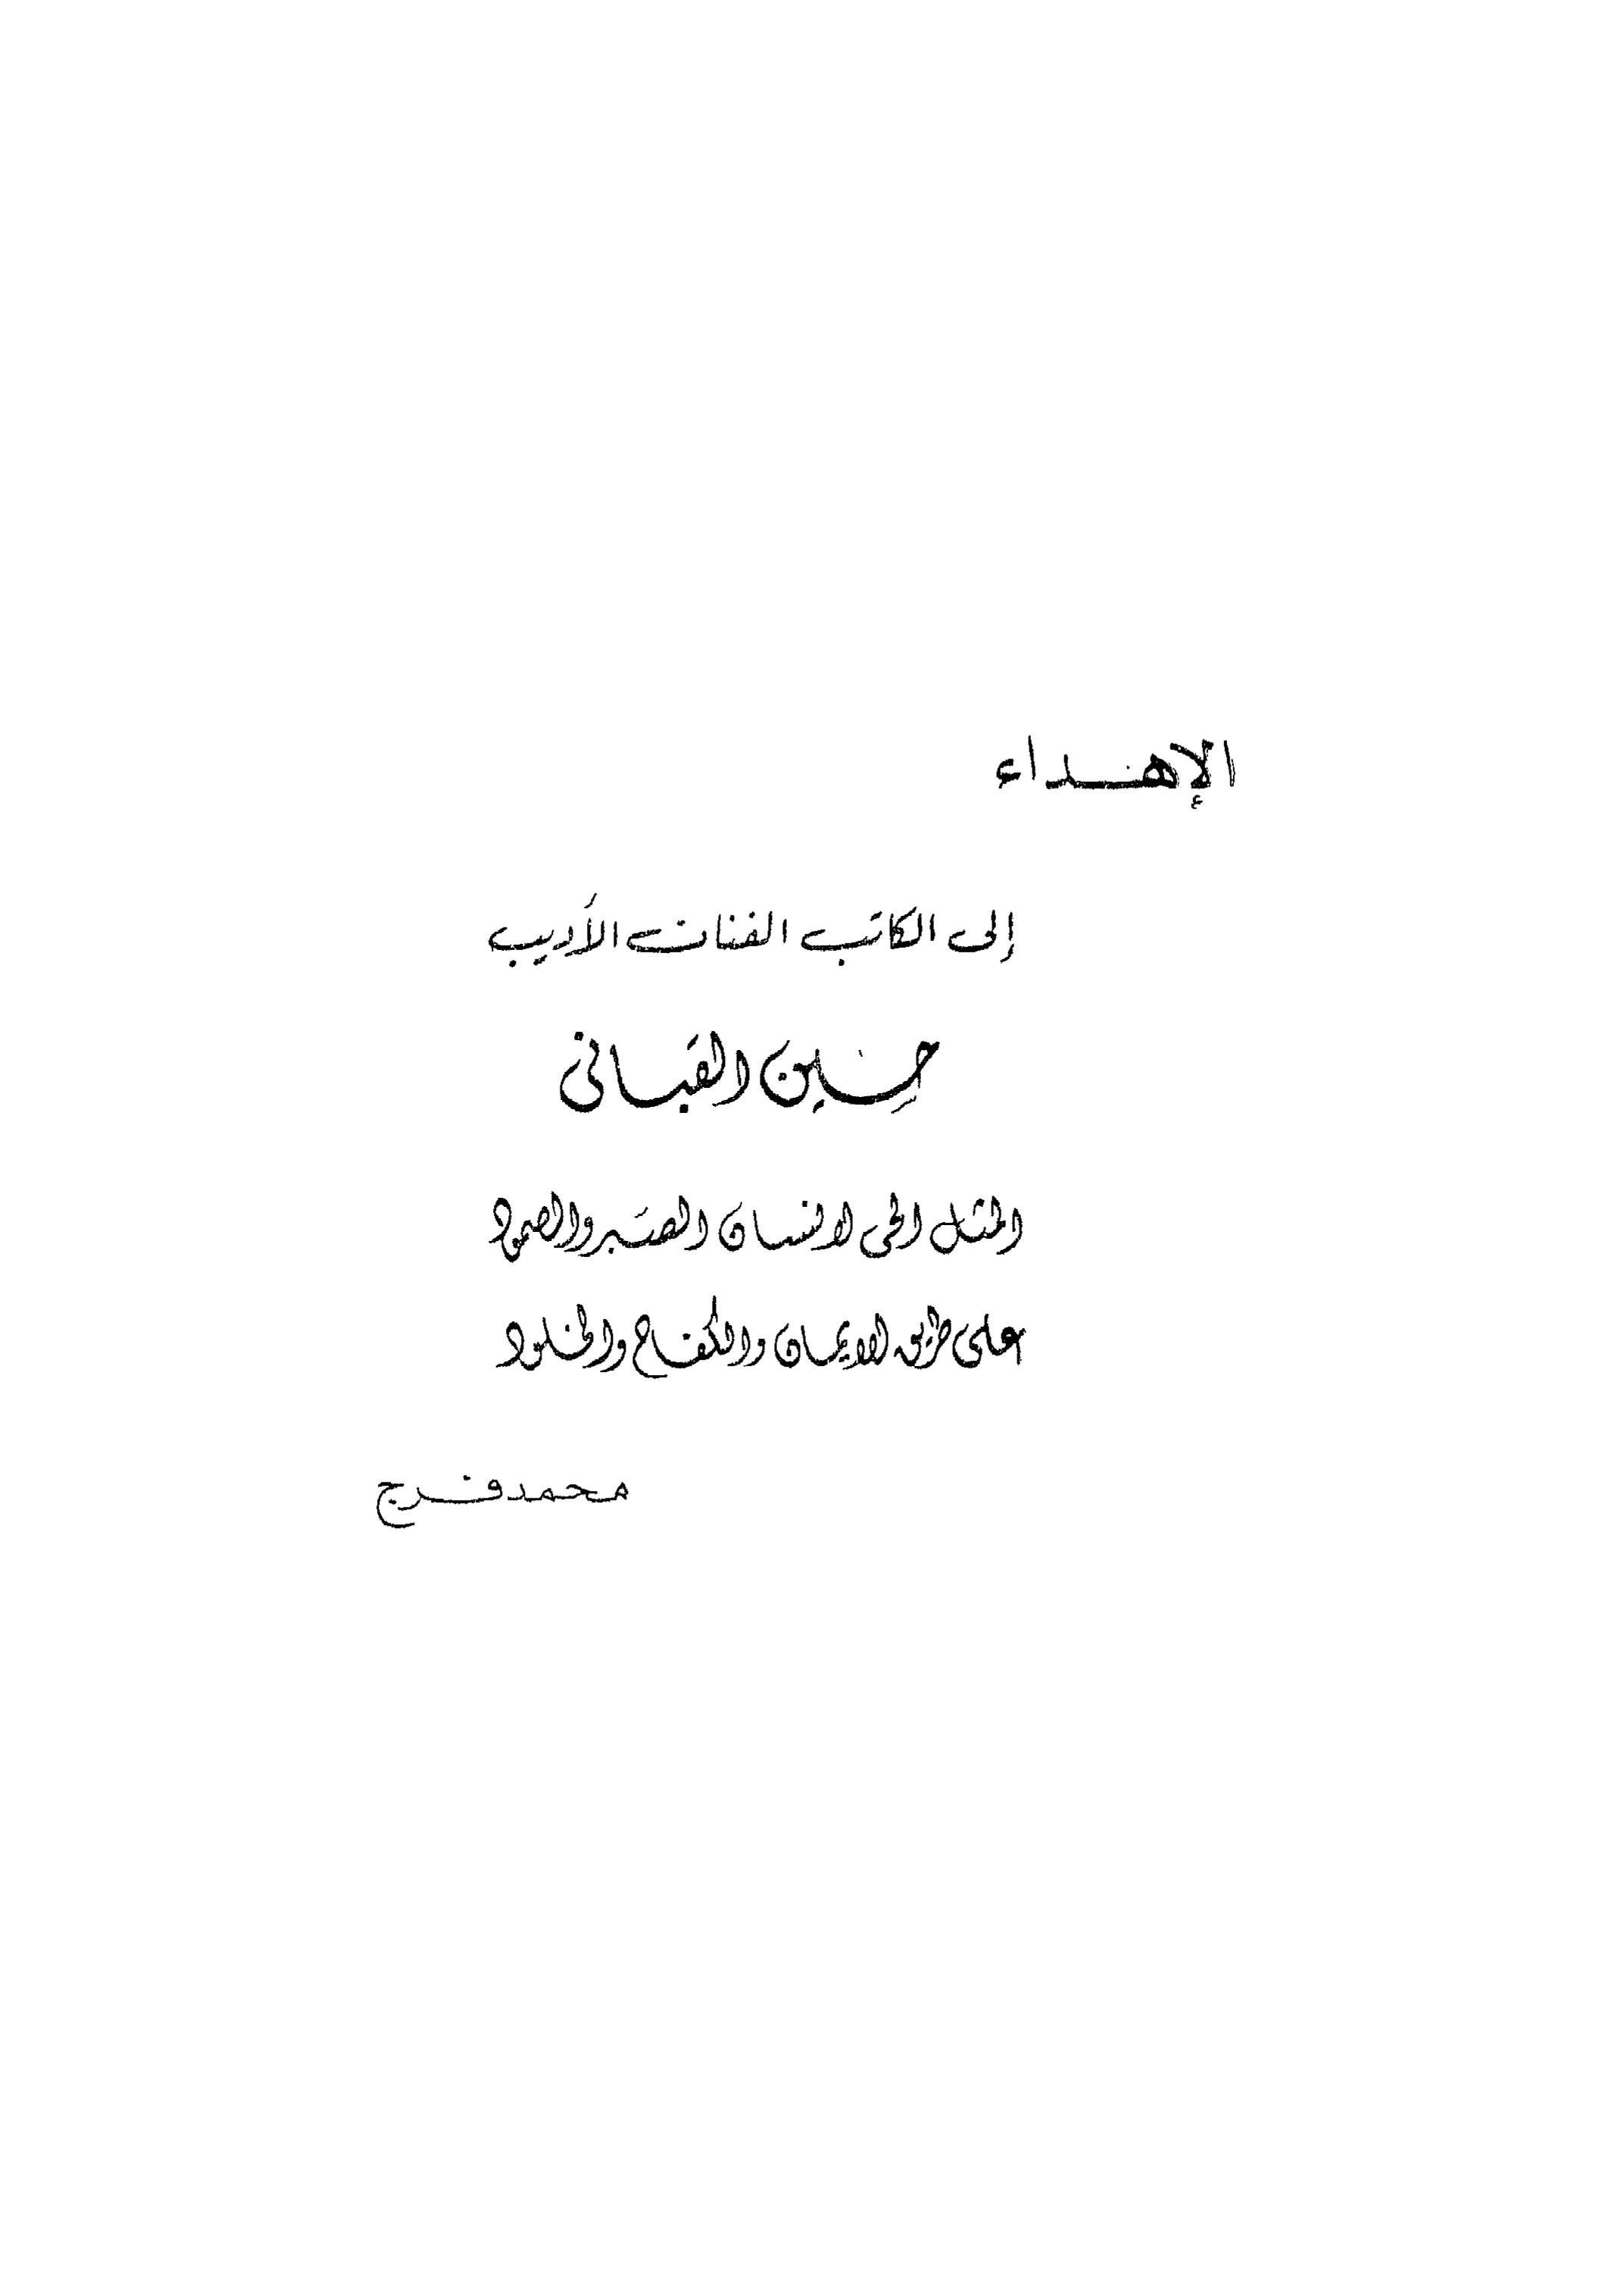 الإهداء
إلى الكاتب الفنان الأديب
حسين القبانى
المثل الحى لانسان الصبر والصمود
على طريق الايمان والكفاح والخلود
محمد فرج